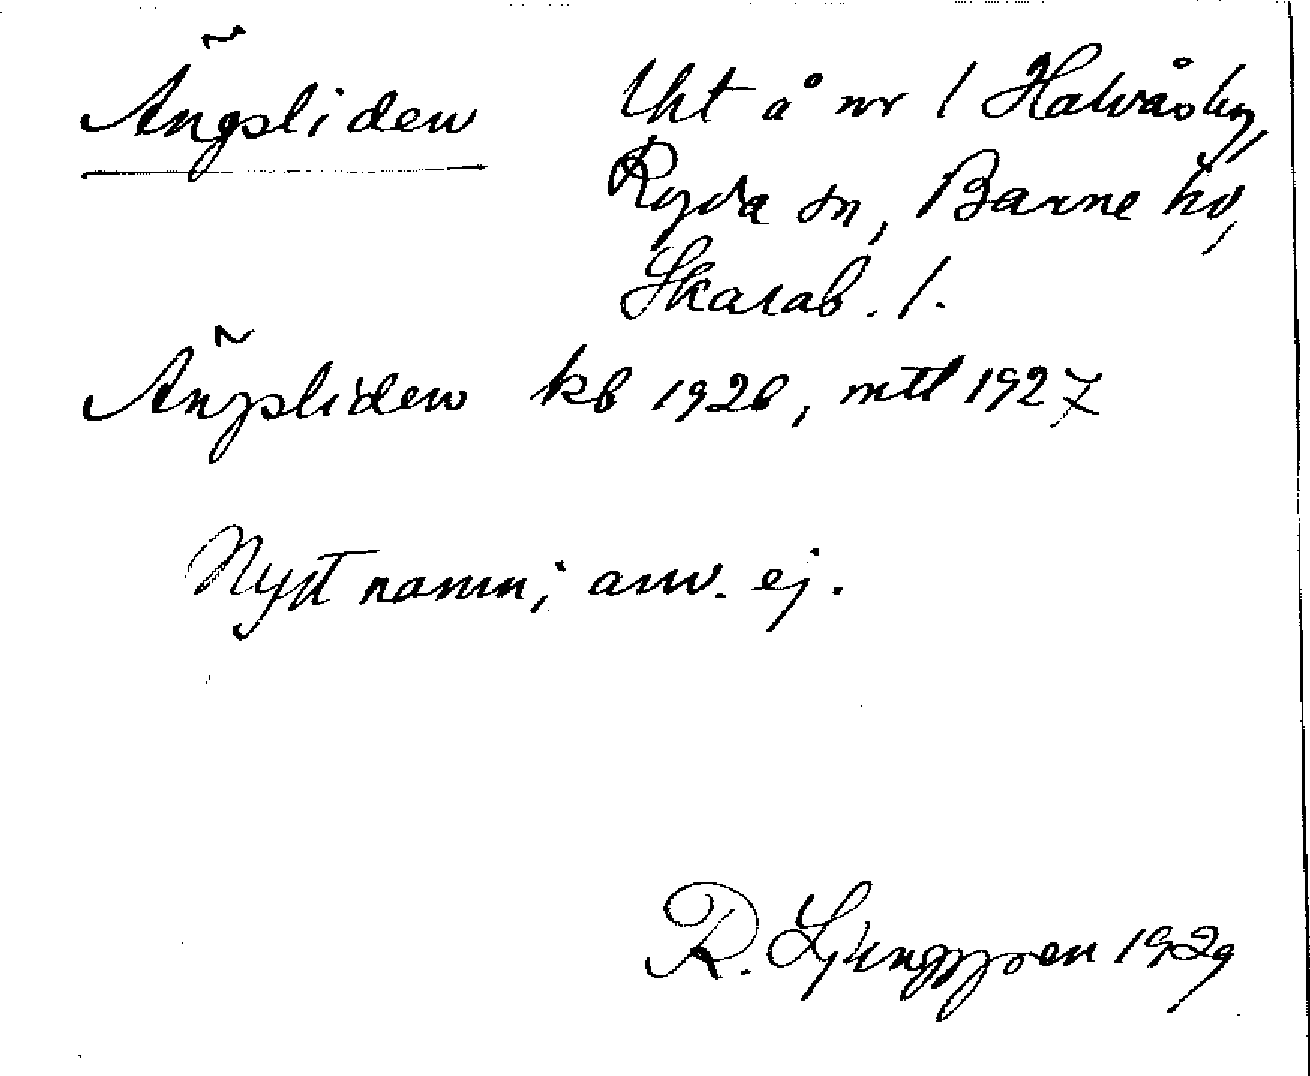 Ängsliden
Lht å nr 1 Halvåsby,
Ryda sn, Barne hd,
Skarab. l.
Ängsliden kb 1926, mtl 1927
Nytt namn; anv. ej.
R. Ljunggren 1929